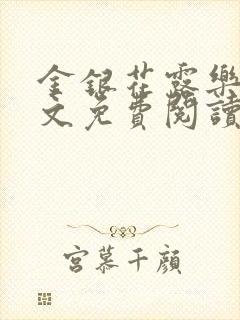 金銀花露樂
文免費閱讀
宮慕千顏